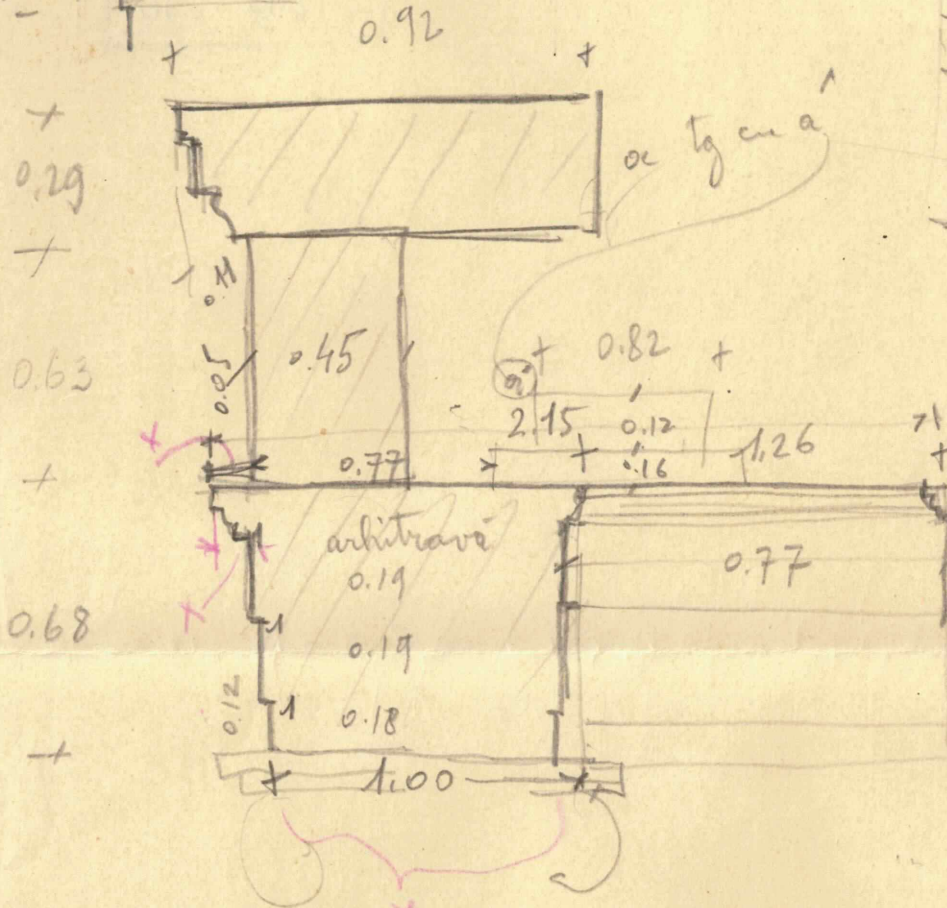 0.92
0.29
tg cu a'
0.11
0.63
0.05
0.45
0.82
a'
2.15
0.12
1.26
0.77
.16
arhitravă
0.19
0.77
0.68
0.19
1
0.12
1
0.18
1.00